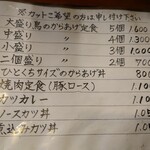 ※カットご希望の方は申し付け下さい。
大盛り鳥のからあげ定食 5個 1600
中盛り 〃 4個 1300
小盛り 〃 3個 1000
二個盛り 〃 2個 700
ひとくちサイズのからあげ丼 800
焼肉定食(豚ロース) 1.10
カツカレー 1.10
ソースカツ丼 1.05
煮込みカツ丼 1.05